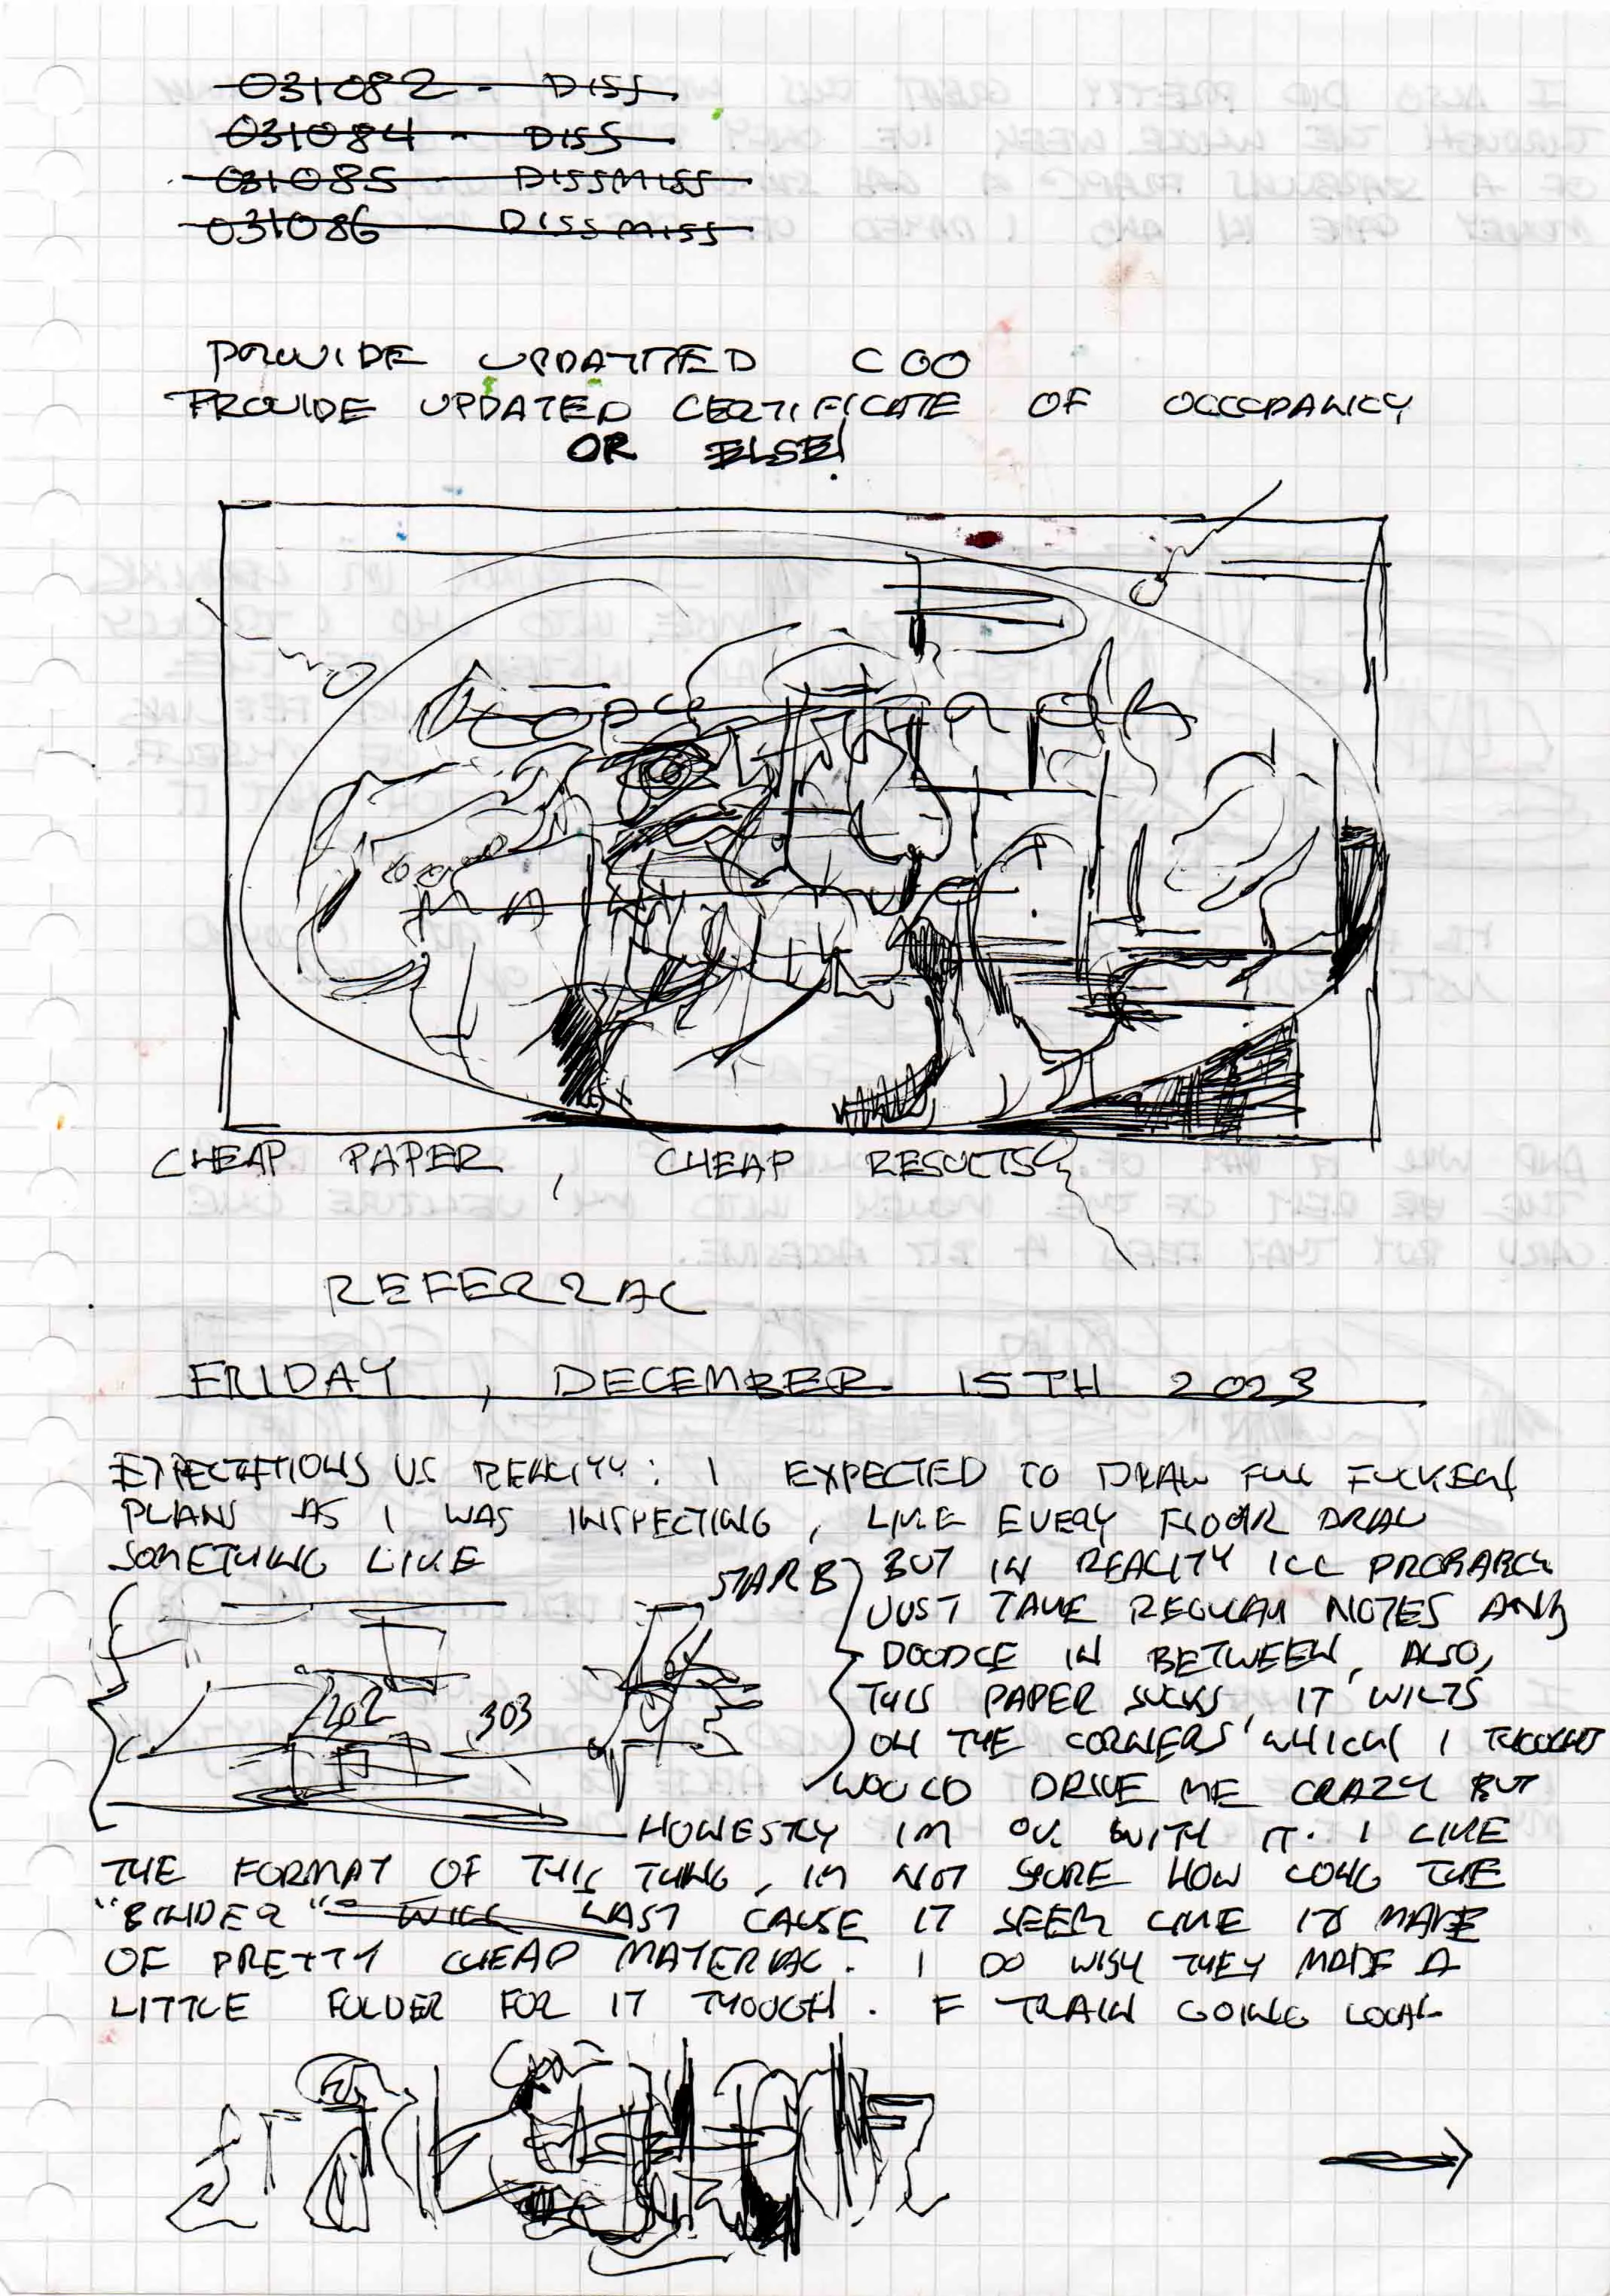 031082 - DISS
031084 - DISS
031085 - DISSMISS
031086 DISSMISS
PROVIDE UPDATTED COO
PROVIDE UPDATED CERTIFICATE OF OCCCPANCY
OR ELSE!
CHEAP PAPER, CHEAP RESULTS
REFERRAL
FRIDAY, DECEMBER 15TH 2023
EXPECTATIONS VS REALITY: I EXPECTED TO DRAW FULL
PLANS AS I WAS INSPECTING, LIKE EVERY FLOOR DRAW
SOMETHING LIKE
STAR B
202
303
BUT IN REALITY ILL PROBABLY
JUST TAKE REGULAR NOTES AND
DOODLE IN BETWEEN, ALSO,
THIS PAPER SUCKS, IT WILTS
ON THE CORNERS WHICH I THOUGHT
WOULD DRIVE ME CRAZY BUT
HONESTLY IM OK WITH IT. I LIKE
THE FORMAT OF THIS THING, IM NOT SURE HOW LONG THE
"BINDER" WILL LAST CAUSE IT SEEM LIKE ITS MADE
OF PRETTY CHEAP MATERIAL. I DO WISH THEY MADE A
LITTLE FOLDER FOR IT THOUGH. F TRAIN GOING LOCAL